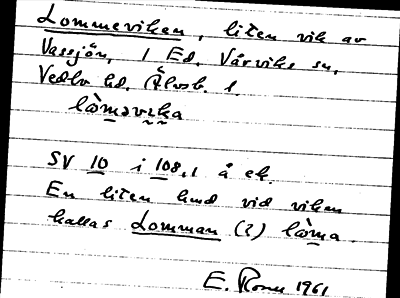 Lommeviken, liten vik av
Vassjön, i Ed. Vårviks sn,
Vedbo hd. Älvsb. l.
lòməvika
SV 10 i 108,1 å ek.
En liten hmd vid viken
kallas Lomman (?) lòma.
E. Ronn 1961